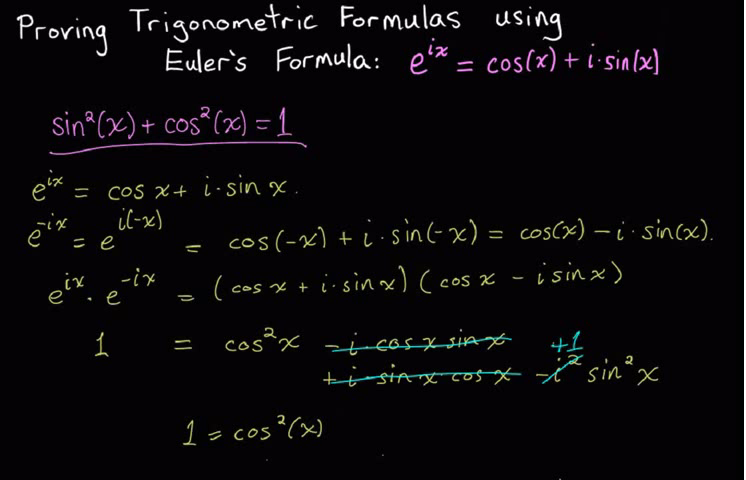 Proving Trigonometric Formulas using
Euler's Formula: e^{ix} = cos(x) + i·sin(x)
sin²(x) + cos²(x) = 1
e^{ix} = cos x + i·sin x.
e^{-ix} = e^{i(-x)} = cos(-x) + i·sin(-x) = cos(x) - i·sin(x).
e^{ix}·e^{-ix} = (cos x + i·sin x)(cos x - i sin x)
1 = cos²x - i·cos x sin x +1
+ i·sin x·cos x - i² sin²x
1 = cos²(x)